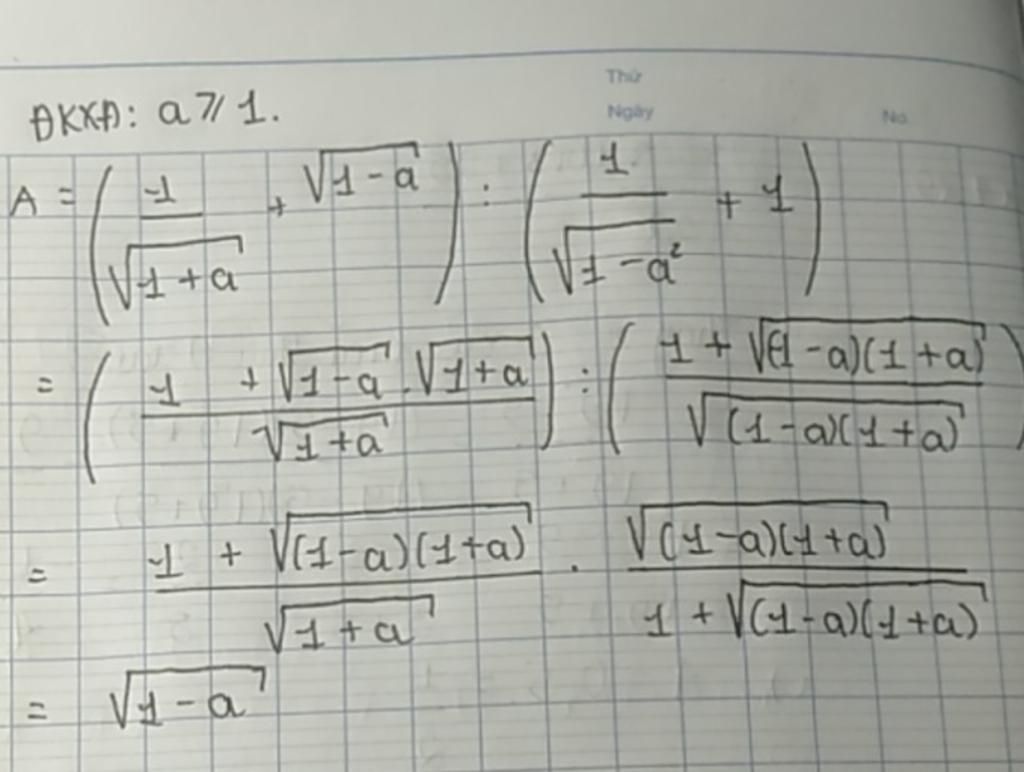 Thứ
Ngày
No.
ĐKXĐ: a ⩾ 1.
A = (1/√(1+a) + √(1-a)) : (1/√(1-a²) + 1)
= ((1 + √(1-a) . √(1+a))/√(1+a)) : ((1 + √((1-a)(1+a)))/√((1-a)(1+a)))
= (1 + √((1-a)(1+a)))/√(1+a) . √((1-a)(1+a))/(1 + √((1-a)(1+a)))
= √(1-a)